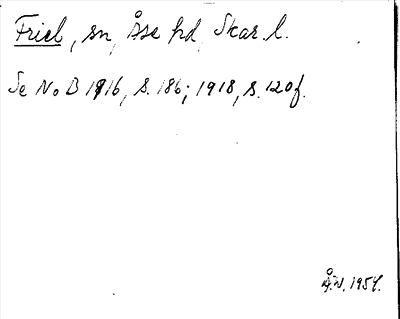 Friel, sn, Åse hd, Skar. l.
Se NoB 1916, s. 186; 1918, s. 120f.
Å.W. 1954.